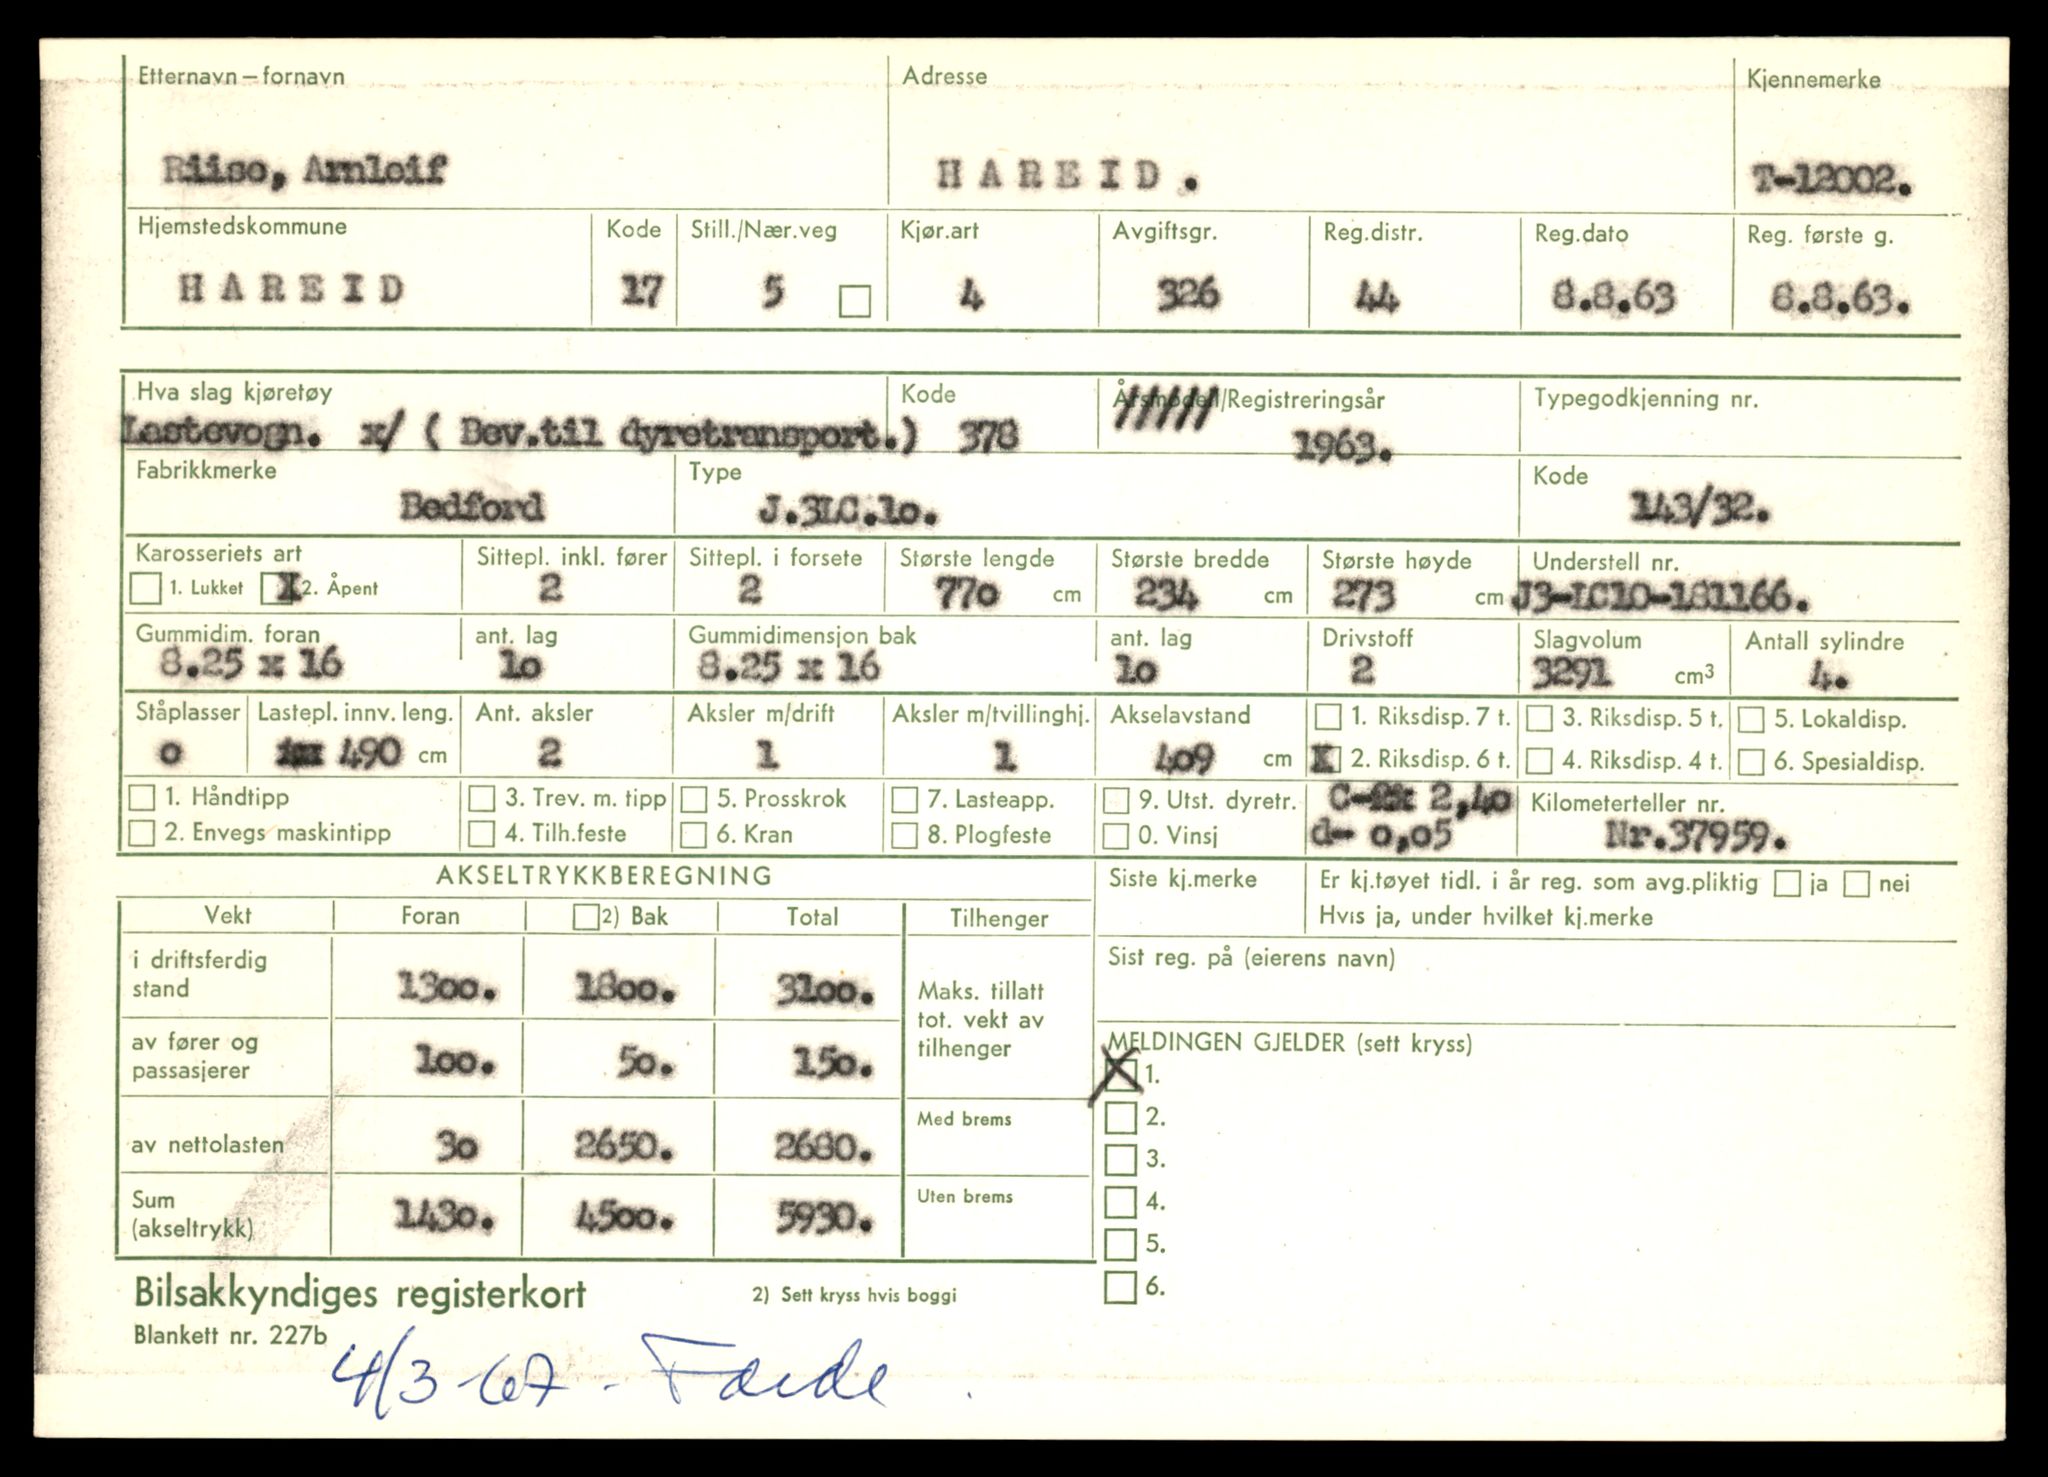 Etternavn – fornavn Adresse Kjennemerke
Riise, Arnleif H A R E I D . T-12002.
Hjemstedskommune Kode Still./Nær.veg Kjør.art Avgiftsgr. Reg.distr. Reg.dato Reg. første g.
H A R E I D 17 5 4 326 44 8.8.63 8.8.63.
Hva slag kjøretøy Kode Årsmodell/Registreringsår Typegodkjenning nr.
Lastevogn. x/ ( Bev.til dyretransport.) 378 1963.
Fabrikkmerke Type Kode
Bedford J.3LC.1o. 143/32.
Karosseriets art Sittepl. inkl. fører Sittepl. i forsete Største lengde Største bredde Største høyde Understell nr.
1. Lukket X 2. Åpent 2 2 770 cm 234 cm 273 cm J3-LC10-181166.
Gummidim. foran ant. lag Gummidimensjon bak ant. lag Drivstoff Slagvolum Antall sylindre
8.25 x 16 1o 8.25 x 16 1o 2 3291 cm³ 4.
Ståplasser Lastepl. innv. leng. Ant. aksler Aksler m/drift Aksler m/tvillinghj. Akselavstand 1. Riksdisp. 7 t. 3. Riksdisp. 5 t. 5. Lokaldisp.
o 490 cm 2 1 1 409 cm X 2. Riksdisp. 6 t. 4. Riksdisp. 4 t. 6. Spesialdisp.
1. Håndtipp 3. Trev. m. tipp 5. Prosskrok 7. Lasteapp. 9. Utst. dyretr. C- 2,40 Kilometerteller nr.
2. Envegs maskintipp 4. Tilh.feste 6. Kran 8. Plogfeste 0. Vinsj d- 0,05 Nr.37959.
AKSELTRYKKBEREGNING Siste kj.merke Er kj.tøyet tidl. i år reg. som avg.pliktig ja nei
Vekt Foran 2) Bak Total Tilhenger Hvis ja, under hvilket kj.merke
i driftsferdig stand 1300. 1800. 3100. Maks. tillatt tot. vekt av tilhenger Sist reg. på (eierens navn)
av fører og passasjerer 100. 50. 150. MELDINGEN GJELDER (sett kryss)
X 1.
av nettolasten 30 2650. 2680. Med brems 2.
3.
Sum (akseltrykk) 1430. 4500. 5930. Uten brems 4.
5.
Bilsakkyndiges registerkort 2) Sett kryss hvis boggi 6.
Blankett nr. 227b
4/3-67 - Førde